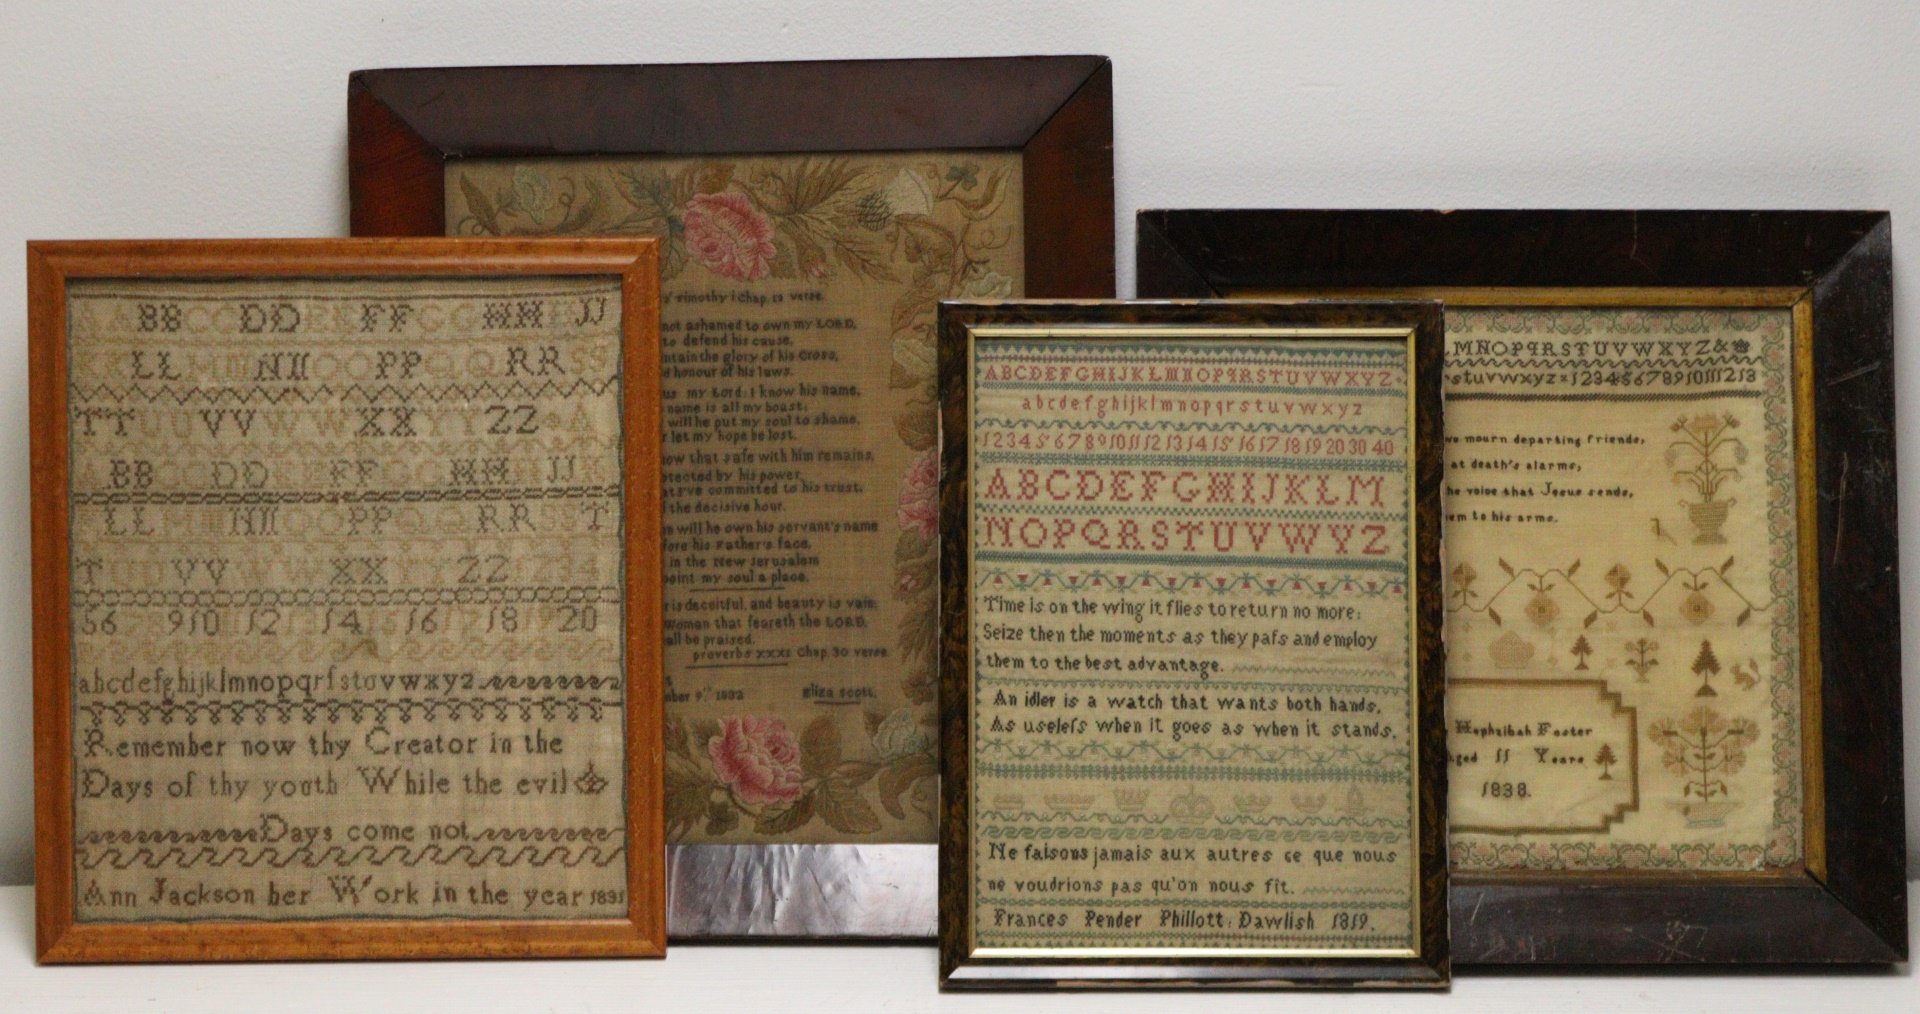 BB DD FF GG HH JJ
LL MM NN OO PP QQ RR SS
TT UU VV WW XX YY ZZ A
BB CC DD FF GG HH JJ
LL MM NN OO PP QQ RR SS T
T UU VV WW XX YY ZZ
56 78 9 10 12 13 14 15 16 17 18 19 20
abcdefghijklmnopqrſstuvwxyz
Remember now thy Creator in the
Days of thy youth While the evil
Days come not
Ann Jackson her Work in the year 1831
Timothy 1 Chap. 12 verse.
not ashamed to own my LORD,
to defend his cause,
the glory of his Cross,
honour of his laws.
my Lord; I know his name,
name is all my boast;
will he put my soul to shame,
let my hope be lost.
that safe with him remains,
by his power,
I've committed to his trust.
the decisive hour.
will he own his servant's name
his Father's face,
in the New Jerusalem
my soul a place.
is deceitful, and beauty is vain;
woman that feareth the LORD,
be praised.
proverbs XXXI Chap. 30 verse
9th 1882 Eliza Scott.
ABCDEFGHIJKLMNOPQRSTUVWXYZ
abcdefghijklmnopqrstuvwxyz
1 2 3 4 5 6 7 8 9 10 11 12 13 14 15 16 17 18 19 20 30 40
ABCDEFGHIJKLM
NOPQRSTUVWYZ
Time is on the wing it flies to return no more:
Seize then the moments as they paſs and employ
them to the best advantage.
An idler is a watch that wants both hands,
As useleſs when it goes as when it stands.
Ne faisons jamais aux autres ce que nous
ne voudrions pas qu'on nous fît.
Frances Pender Phillott: Dawlish 1819.
MNOPQRSTUVWXYZ&
stuvwxyz 12345678910111213
we mourn departing friends,
at death's alarms,
voice that Jesus sends,
to his arms.
Hephzibah Foster
Aged 11 Years
1838.